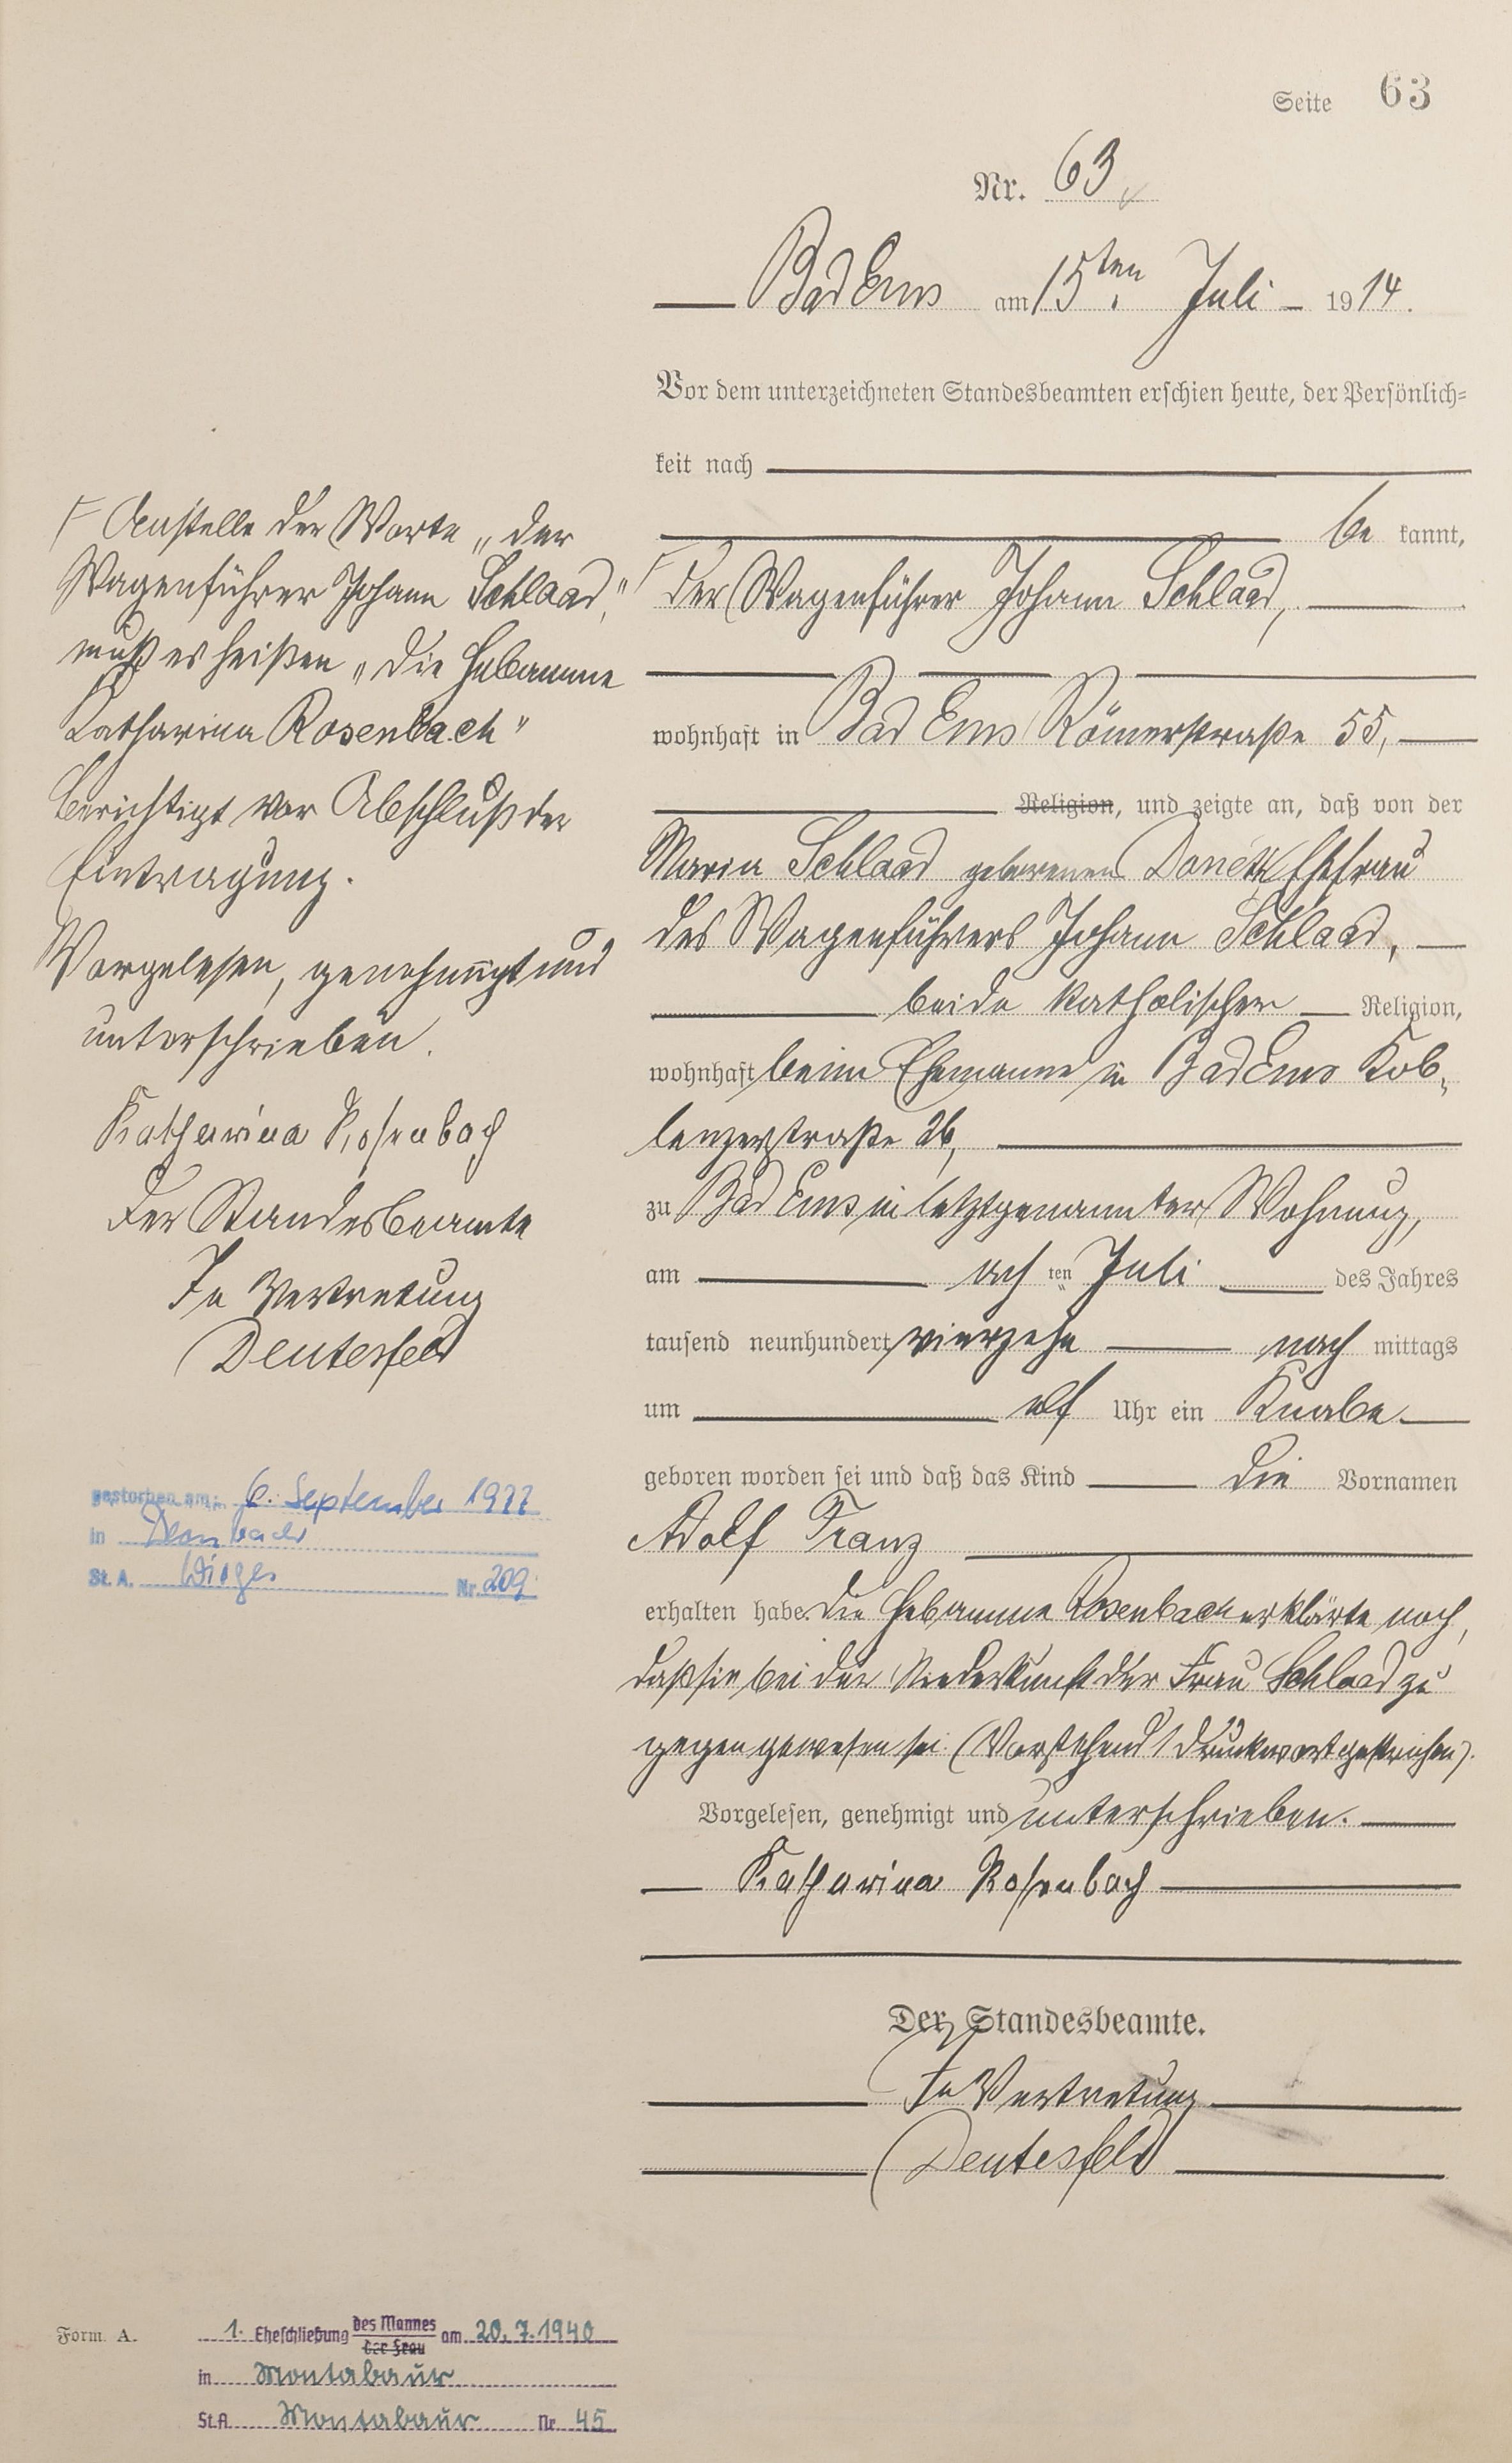 Seite 63
Nr. 63
Bad Ems am 15ten Juli 1914.
Vor dem unterzeichneten Standesbeamten erschien heute, der Persönlich=
keit nach
be kannt,
Γ der Wagenführer Johann Schlaad,
wohnhaft in Bad Ems Römerstraße 55,
Religion, und zeigte an, daß von der
Maria Schlaad geborenen Ehefrau
des Wagenführers Johann Schlaad,
beide katholischer Religion,
wohnhaft beim Ehemanne in Bad Ems Kob,
lenzerstraße 26,
zu Bad Ems in letztgenannter Wohnung,
am ten Juli des Jahres
tausend neunhundert vierzehn nach mittags
um elf Uhr ein Knabe
geboren worden sei und daß das Kind die Vornamen
Adolf Franz
erhalten habe. Die Hebamme Rosenbach erklärte noch,
daß sie bei der Niederkunft der Frau Schlaad zu
gegen gewesen sei. (Vorstehend 1 Druckwort gestrichen).
Vorgelesen, genehmigt und unterschrieben.
Katharina Rosenbach
Der Standesbeamte.
In Vertretung
Deutesfeld
Γ Anstelle der Worte „der
Wagenführer Johann Schlaad,"
muß es heißen „die Hebamme
Katharina Rosenbach"
Berichtigt vor Abschluß der
Eintragung.
Vorgelesen, genehmigt und
unterschrieben.
Katharina Rosenbach
Der Standesbeamte
In Vertretung
Deutesfeld
gestorben am: 6. September 1977
in Dernbach
St. A. Wirges Nr. 209
Form. A.
1. Eheschließung des Mannes am 20.7.1940
der Frau
in Montabaur
St.A. Montabaur Nr. 45